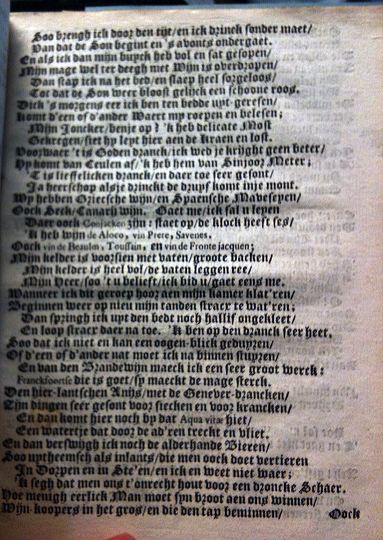 Soo brengh ick door den tijt/en ick drinck sonder maet/
Van dat de Son begint en 's avonts ondergaet.
En als ick dan mijn buyck heb vol en sat gesopen/
Mijn mage wel ter deegh met Wijn is overdropen
Dan stap ick na het bed/en slaep heel sorgeloos/
Tot dat de Son weer bloost gelijck een schoone roos.
Dick 's morgens eer ick ben ten bedde upt-geresen/
Komt d'een of d'ander Waert my roepen en belesen;
Mijn Joncker/benje op? 'k heb delicate Most
Gekregen/siet hy lept hier aen de Kraen en lost.
Voorwaer 't is Goden dranck/ick wed je krijght geen beter/
Hy komt van Ceulen af/'k heb hem van Sinjoor Meter;
T is lieffelicken dranck/en daer toe seer gesont/
Ja heerschop alsje drinckt de drupt komt inje mont.
Wy hebben Grietsche wijn/en Spaensche Malvesepen
Oock Seck/Canary wijn. Gaet me/ick sal u lepen
Daer oock Coojacken zijn: staet op/de klock heeft ses/
Ik heb wijn de Aloco, via Prete, Savenes,
Oock vin de Beaulm, Toussin, en vin de Fronte jacquen;
Mijn kelder is voorsien met vaten/groote backen/
Mijn kelder is heel vol/de vaten leggen ree/
Mijn Heer/soo 't u belieft/ick bid u/gaet eens me.
Wanneer ick dit geroep hoor aen mijn kamer klat'ren/
Beginnen weer op nieu mijn tanden stracr te wat'ren;
Dan spring ick upt den bedt noch hallif ongekleet/
En loop stracr daer na toe. 'k Ben op den dranck seer heet.
Soo dat ick niet en kan een oogen-blick geduyren/
Of d'een of d'ander nat moet ick na binnen stuyren/
En van den Brandewijn maeck ick een seer groot werck:
Franckfoortse die is goet/sy maeckt de mage sterck.
Den hier-lantschen Anijs/met de Genever-drancken/
Zijn dingen seer gesont voor siecken en voor krancken/
En dan komt hier noch by dat Aqua vitae hiet/
Een watertje dat door de ad'ren treckt en vliet.
En dan verswijgh ick noch de alderhande Bieren/
Soo uptheemsch als inlants/die men oock doet vertieren
In Dorpen en in Ste'en/en ick en weet niet waer;
'k segh dat men ons t'onrecht hout voor een droncke Schaer.
Hoe menigh eerlick Man moet syn broot aen ons winnen/
Wijn-koopers in het gros/en die den tap beminnen/
Oock